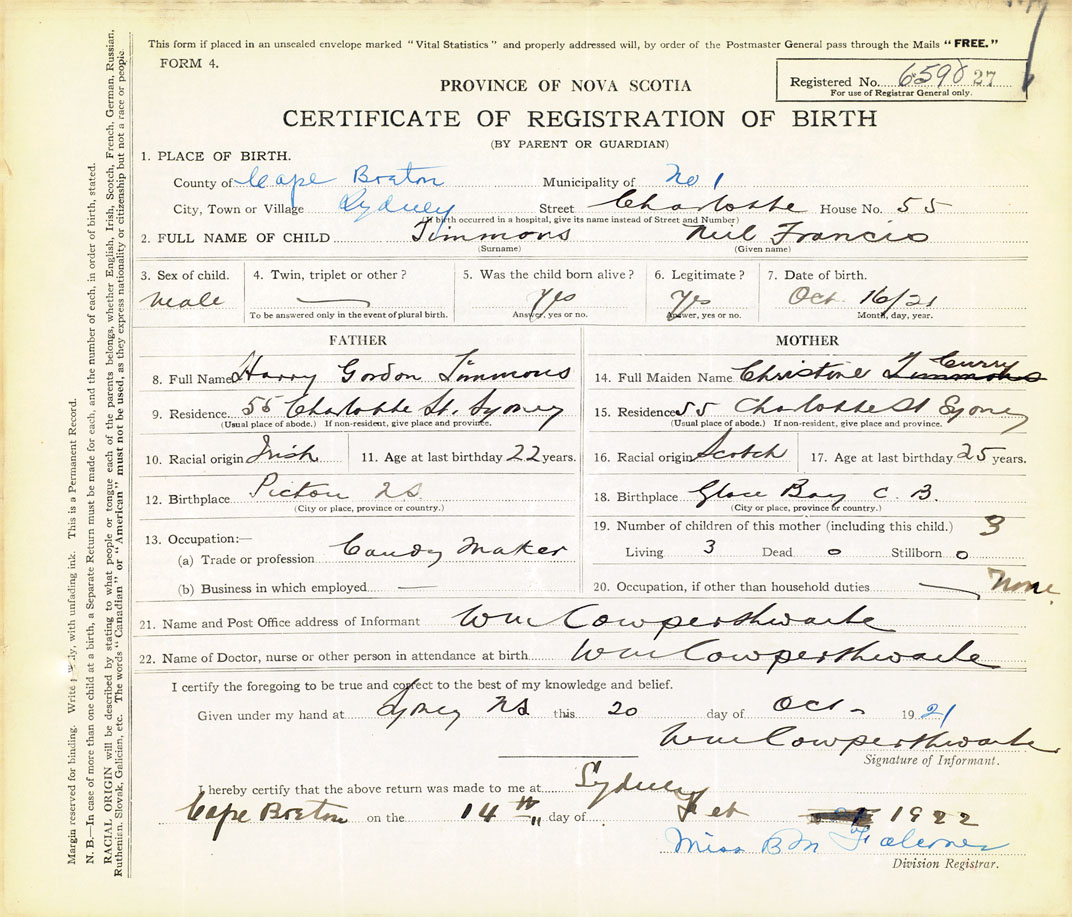 This form if placed in an unsealed envelope marked "Vital Statistics" and properly addressed will, by order of the Postmaster General pass through the Mails "FREE."
FORM 4.
Registered No. 6598 27
For use of Registrar General only.
PROVINCE OF NOVA SCOTIA
CERTIFICATE OF REGISTRATION OF BIRTH
(BY PARENT OR GUARDIAN)
1. PLACE OF BIRTH.
County of Cape Breton Municipality of No 1
City, Town or Village Sydney Street Charlotte House No. 55
(If birth occurred in a hospital, give its name instead of Street and Number)
2. FULL NAME OF CHILD Timmons Neil Francis
(Surname) (Given name)
3. Sex of child. 4. Twin, triplet or other? 5. Was the child born alive? 6. Legitimate? 7. Date of birth.
Male — Yes Yes Oct. 16/21
To be answered only in the event of plural birth. Answer, yes or no. Answer, yes or no. Month, day, year.
FATHER
8. Full Name Harry Gordon Timmons
9. Residence 55 Charlotte St. Sydney
(Usual place of abode.) If non-resident, give place and province.
10. Racial origin Irish 11. Age at last birthday 22 years.
12. Birthplace Pictou NS.
(City or place, province or country.)
13. Occupation:—
(a) Trade or profession Candy Maker
(b) Business in which employed —
MOTHER
14. Full Maiden Name Christine Timmons Curry
15. Residence 55 Charlotte St Sydney
(Usual place of abode.) If non-resident, give place and province.
16. Racial origin Scotch 17. Age at last birthday 25 years.
18. Birthplace Glace Bay C. B.
(City or place, province or country.)
19. Number of children of this mother (including this child.) 3
Living 3 Dead 0 Stillborn 0
20. Occupation, if other than household duties — None.
21. Name and Post Office address of Informant Wm Cowperthwaite
22. Name of Doctor, nurse or other person in attendance at birth Wm Cowperthwaite
I certify the foregoing to be true and correct to the best of my knowledge and belief.
Given under my hand at Sydney NS this 20 day of Oct - 1921
Wm Cowperthwaite
Signature of Informant.
I hereby certify that the above return was made to me at Sydney
Cape Breton on the 14th day of Feb 1922
Miss B M
Division Registrar.
Margin reserved for binding. Write plainly, with unfading ink. This is a Permanent Record.
N. B.—In case of more than one child at a birth, a Separate Return must be made for each, and the number of each, in order of birth, stated.
RACIAL ORIGIN will be described by stating to what people or tongue each of the parents belongs, whether English, Irish, Scotch, French, German, Russian,
Ruthenian, Slovak, Galician, etc. The words "Canadian" or "American" must not be used, as they express nationality or citizenship but not a race or people.